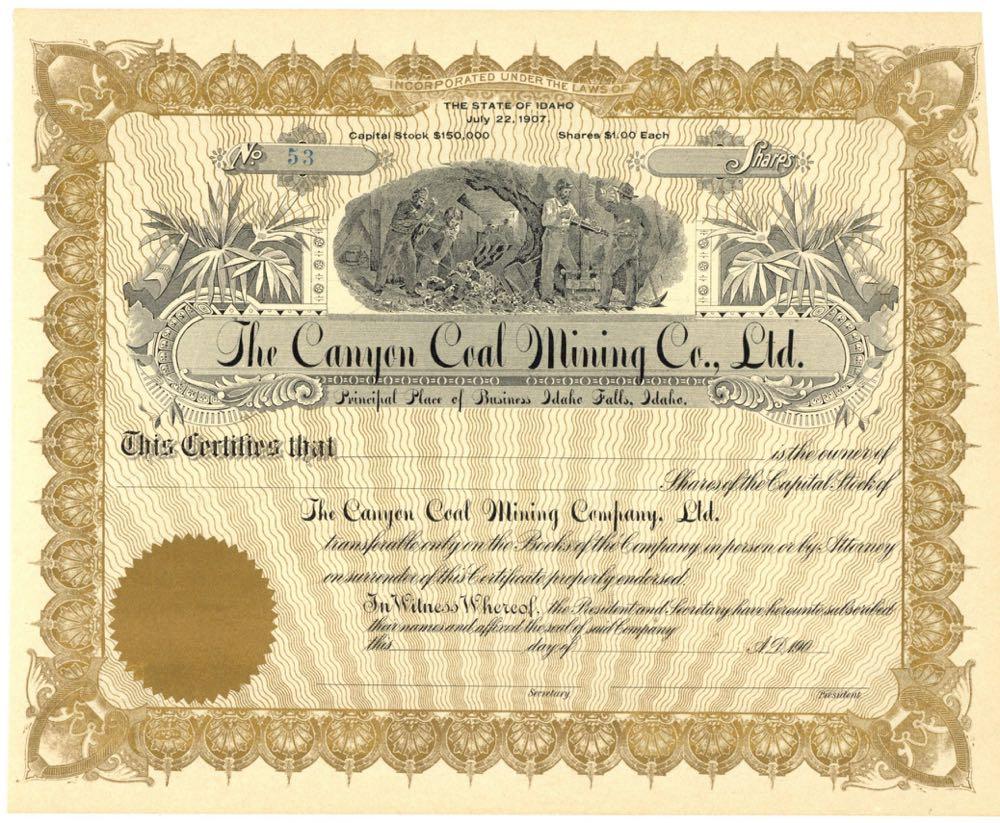 INCORPORATED UNDER THE LAWS OF
THE STATE OF IDAHO
July 22, 1907.
Capital Stock $150,000 Shares $1.00 Each
No. 53 Shares
The Canyon Coal Mining Co., Ltd.
Principal Place of Business Idaho Falls, Idaho.
This Certifies that is the owner of
Shares of the Capital Stock of
The Canyon Coal Mining Company, Ltd.
transferable only on the Books of the Company in person or by Attorney
on surrender of this Certificate properly endorsed.
In Witness Whereof, the President and Secretary have hereunto subscribed
their names and affixed the seal of said Company
this day of A.D. 190
Secretary President